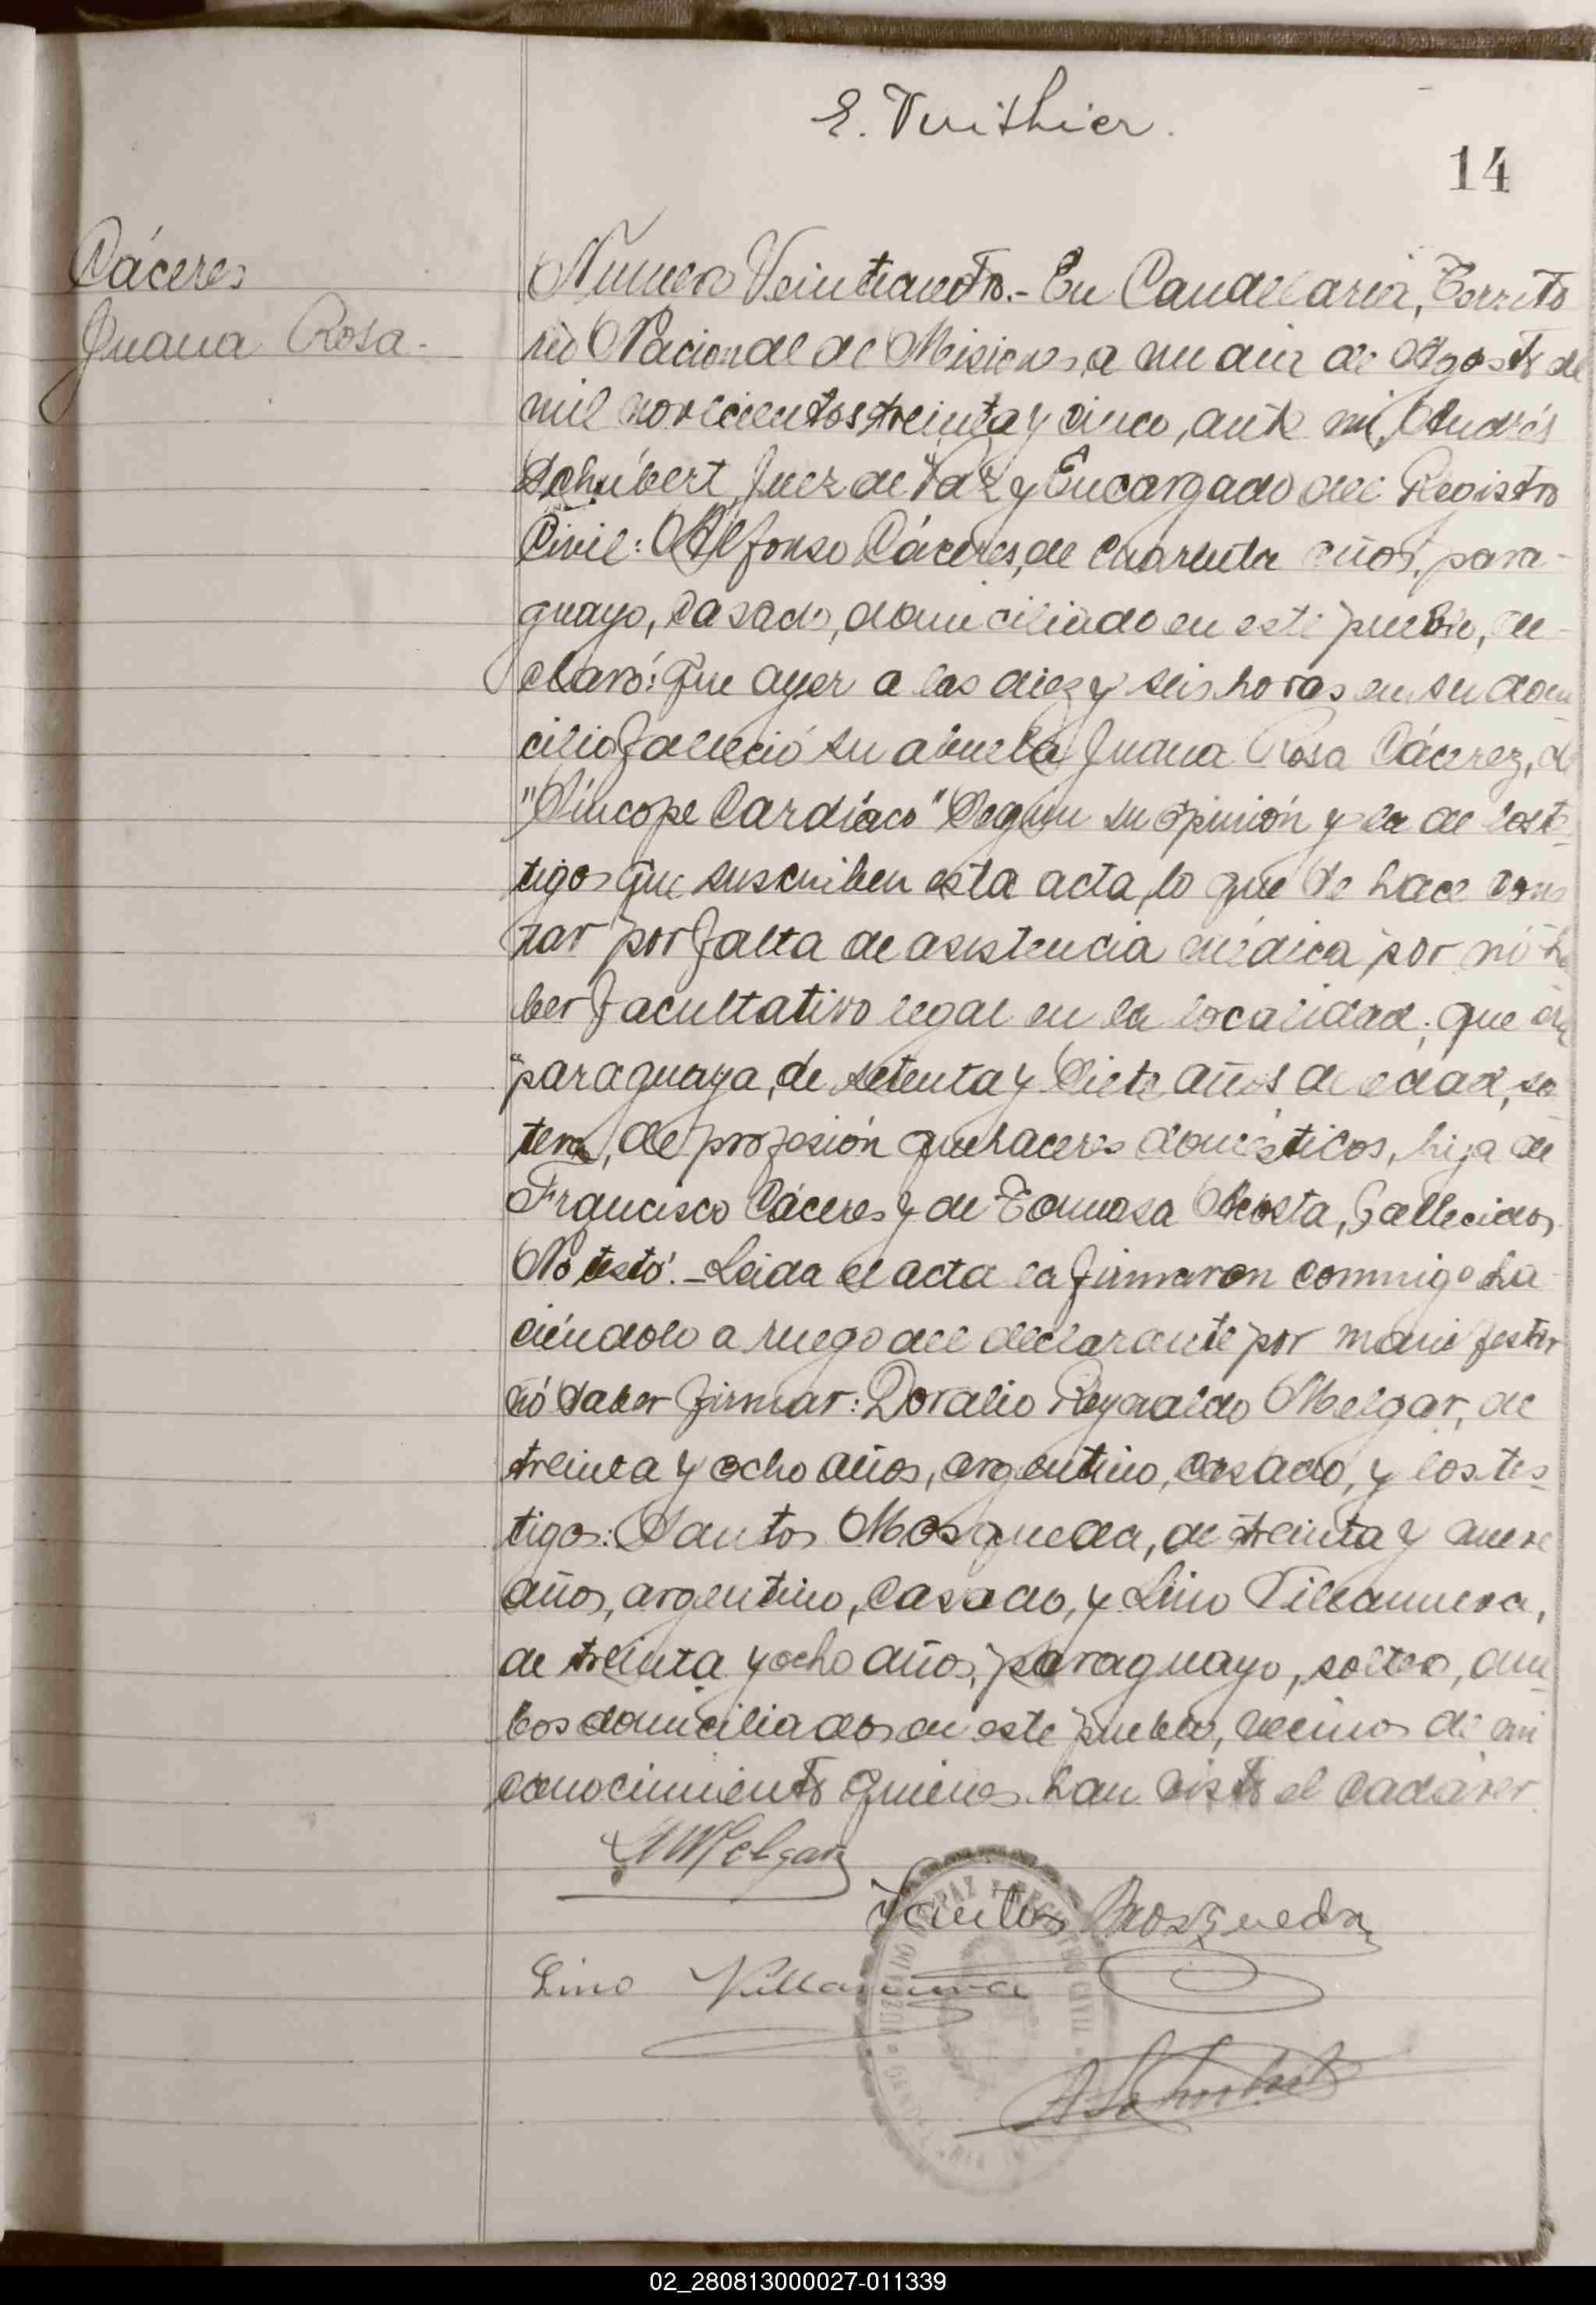 E. Vuithier.
14
Cáceres
Juana Rosa.-
Número Veinticuatro.- En Candelaria, Territo
rio Nacional de Misiones, a un día de Agosto de
mil novecientos treinta y cinco, ante mi, Andrés
Schubert, Juez de Paz y Encargado del Registro
Civil: Alfonso Cáceres, de cuarenta años, para-
guayo, casado, domiciliado en este pueblo, de-
claró: Que ayer a las diez y seis horas en su domi
cilio falleció su abuela Juana Rosa Cácerez, de
"Síncope Cardíaco" Según su opinión y la de los te-
tigos que suscriben esta acta, lo que se hace cons
tar por falta de asistencia médica por nó ha
ber facultativo legal en la localidad; que era
paraguaya, de setenta y siete años de edad, sol
tera, de profesión quehaceres domésticos, hija de
Francisco Cáceres y de Acosta, fallecidos.
No testó.- Leida el acta la firmaron conmigo ha-
ciéndolo a ruego del declarante por manifestar
nó saber firmar: Doralio Reynaldo Melgar, de
treinta y ocho años, argentino, casado, y los tes-
tigos: Santos Mosqueda, de treinta y nueve
años, argentino, casado, y Lino Villanueva,
de treinta y ocho años, paraguayo, soltero, am-
bos domiciliados en este pueblo, vecinos de mi
conocimiento quienes han visto el cadáver.
Melgar
Santos Mosqueda
Lino Villanueva
A Schubert
JUZGADO DE PAZ Y REGISTRO CIVIL
CANDELARIA
02_280813000027-011339